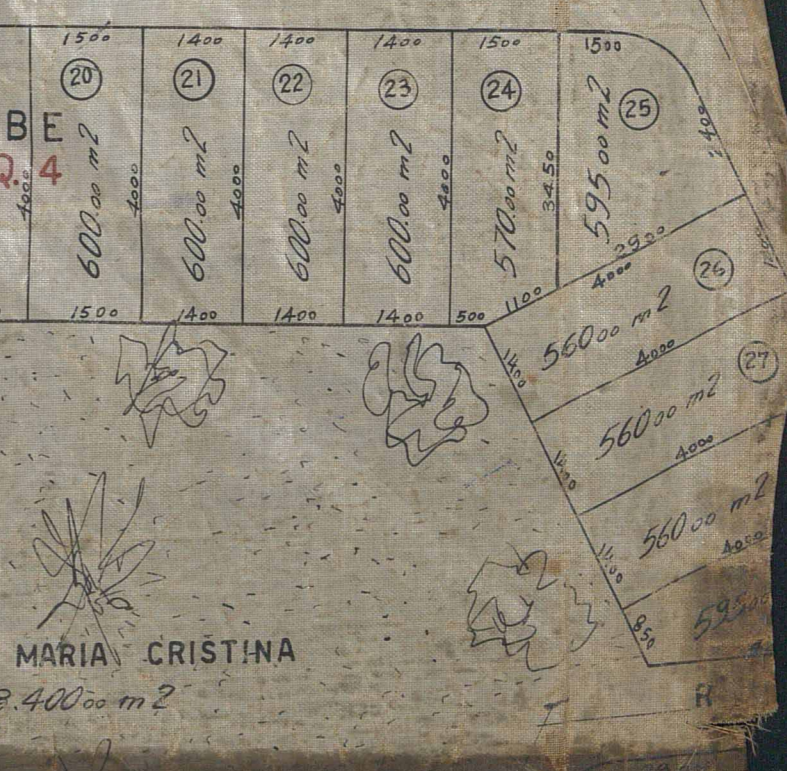 1500 1400 1400 1400 1500 1500
20 21 22 23 24 25
B E
Q. 4
4000
600.00 m2
4000
600.00 m2
4000
600.00 m2
4000
600.00 m2
4000
570.00 m2
3450
595.00 m2
2400
2900
1500 1400 1400 1400 500 1100
4000
26
1400
560.00 m2
4000
27
560.00 m2
1400
4000
560.00 m2
1400
4000
595.00
850
MARIA CRISTINA
.400.00 m2
R